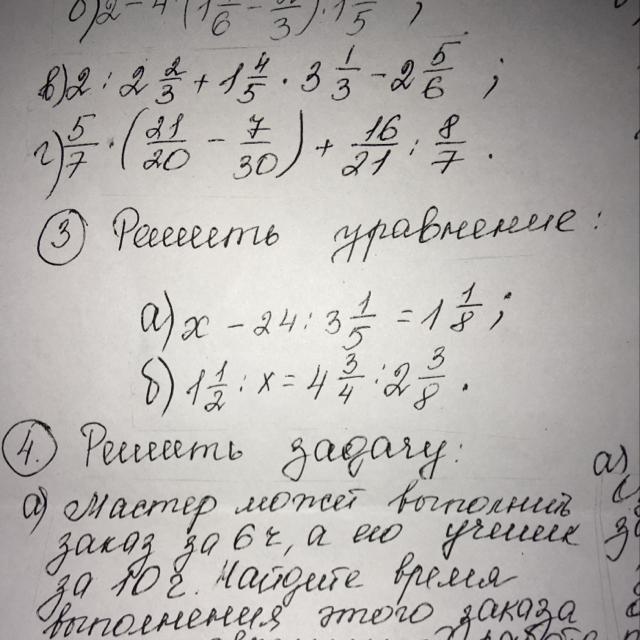 б) 2 - 4 (1 1/6 - /3) : 1 /5 ;
в) 2 : 2 2/3 + 1 4/5 · 3 1/3 - 2 5/6 ;
г) 5/7 · (21/20 - 7/30) + 16/21 : 8/7 .
3 Решить уравнение :
а) x - 24 : 3 1/5 = 1 1/8 ;
б) 1 1/2 : x = 4 3/4 : 2 3/8 .
4. Решить задачу :
а) Мастер может выполнить
заказ за 6 ч, а его ученик
за 10 ч. Найдите время
выполнения этого заказа
а)